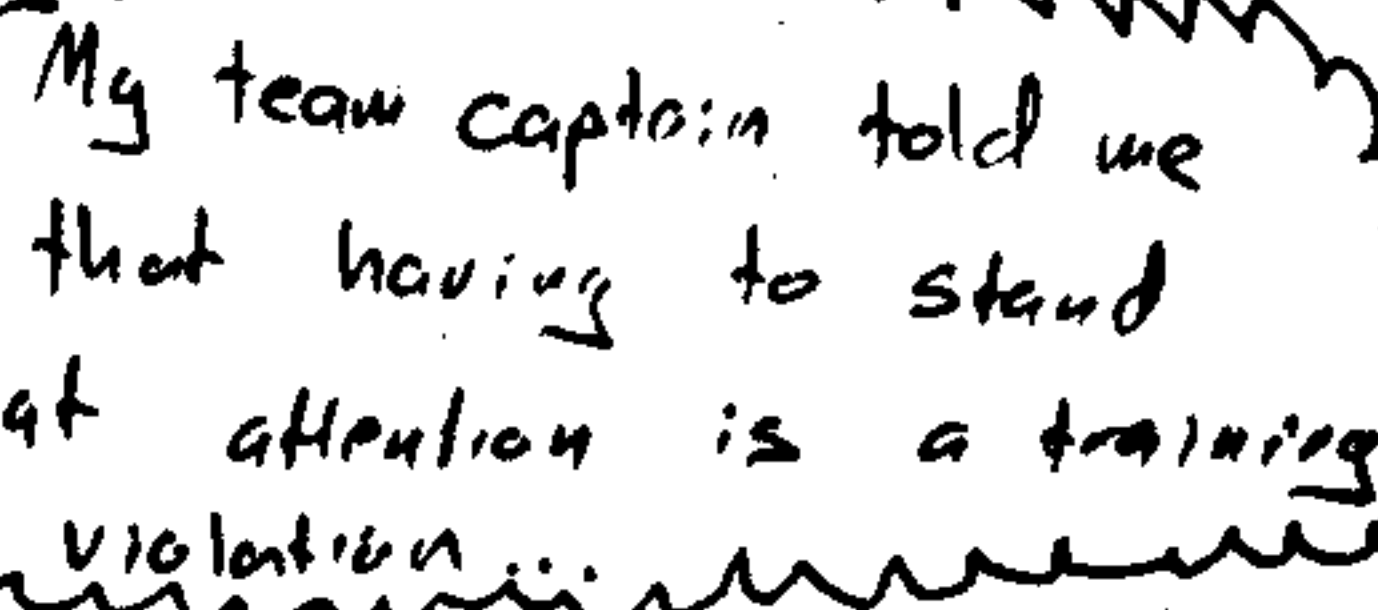 My team captain told me
that having to stand
at attention is a training
violation...